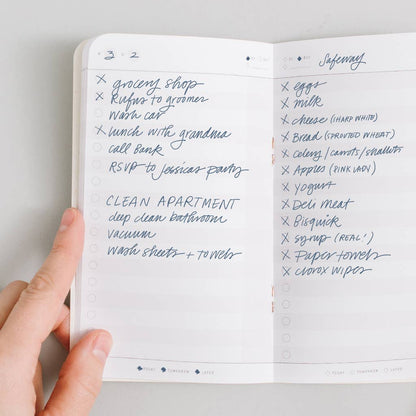 3 2
X grocery shop
X Rufus to groomer
wash car
X lunch with grandma
call Bank
RSVP to Jessicas party
CLEAN APARTMENT
deep clean bathroom
vacuum
wash sheets + towels
TODAY TOMORROW LATER
Safeway
X eggs
X milk
X cheese (SHARP WHITE)
X Bread (SPROUTED WHEAT)
X Celery / carrots / shallots
X Apples (PINK LADY)
X yogurt
X Deli meat
X Bisquick
X syrup (REAL!)
X Paper towels
X clorox wipes
TODAY TOMORROW LATER